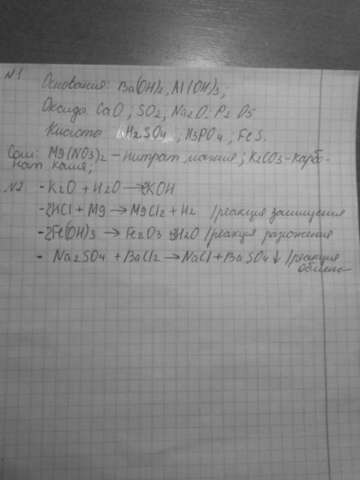 №1
Основания: Ba(OH)2, Al(OH)3;
Оксиды CaO; SO2, Na2O. P2O5
Кислоты H2SO4; H3PO4; FeS.
Соли: Mg(NO3)2 – нитрат магния; K2CO3 – карбо-
нат калия;
№2 - K2O + H2O → 2KOH
- 2HCl + Mg → MgCl2 + H2 /реакция замещения
- 2Fe(OH)3 → Fe2O3 + 3H2O /реакция разложения
- Na2SO4 + BaCl2 → NaCl + BaSO4↓ /реакция
обмена